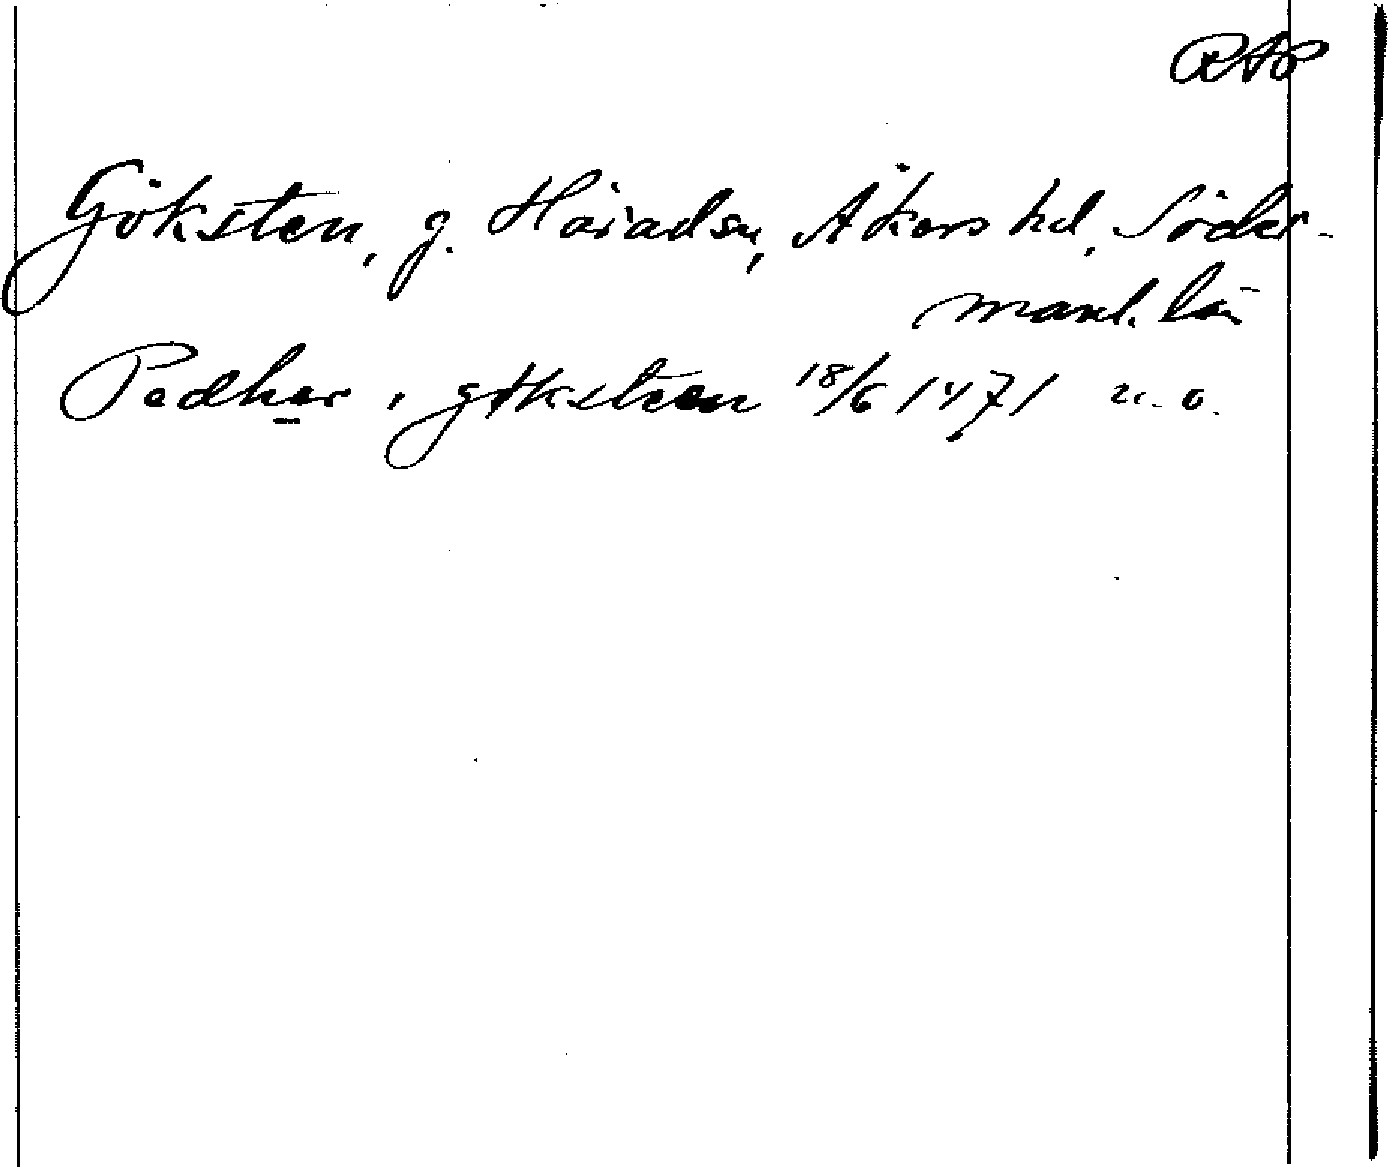 RAP
Göksten, g. Häradsn, Åkers hd, Söder-
manl. län
Pedher i gøksteen 18/6 1471 u. o.